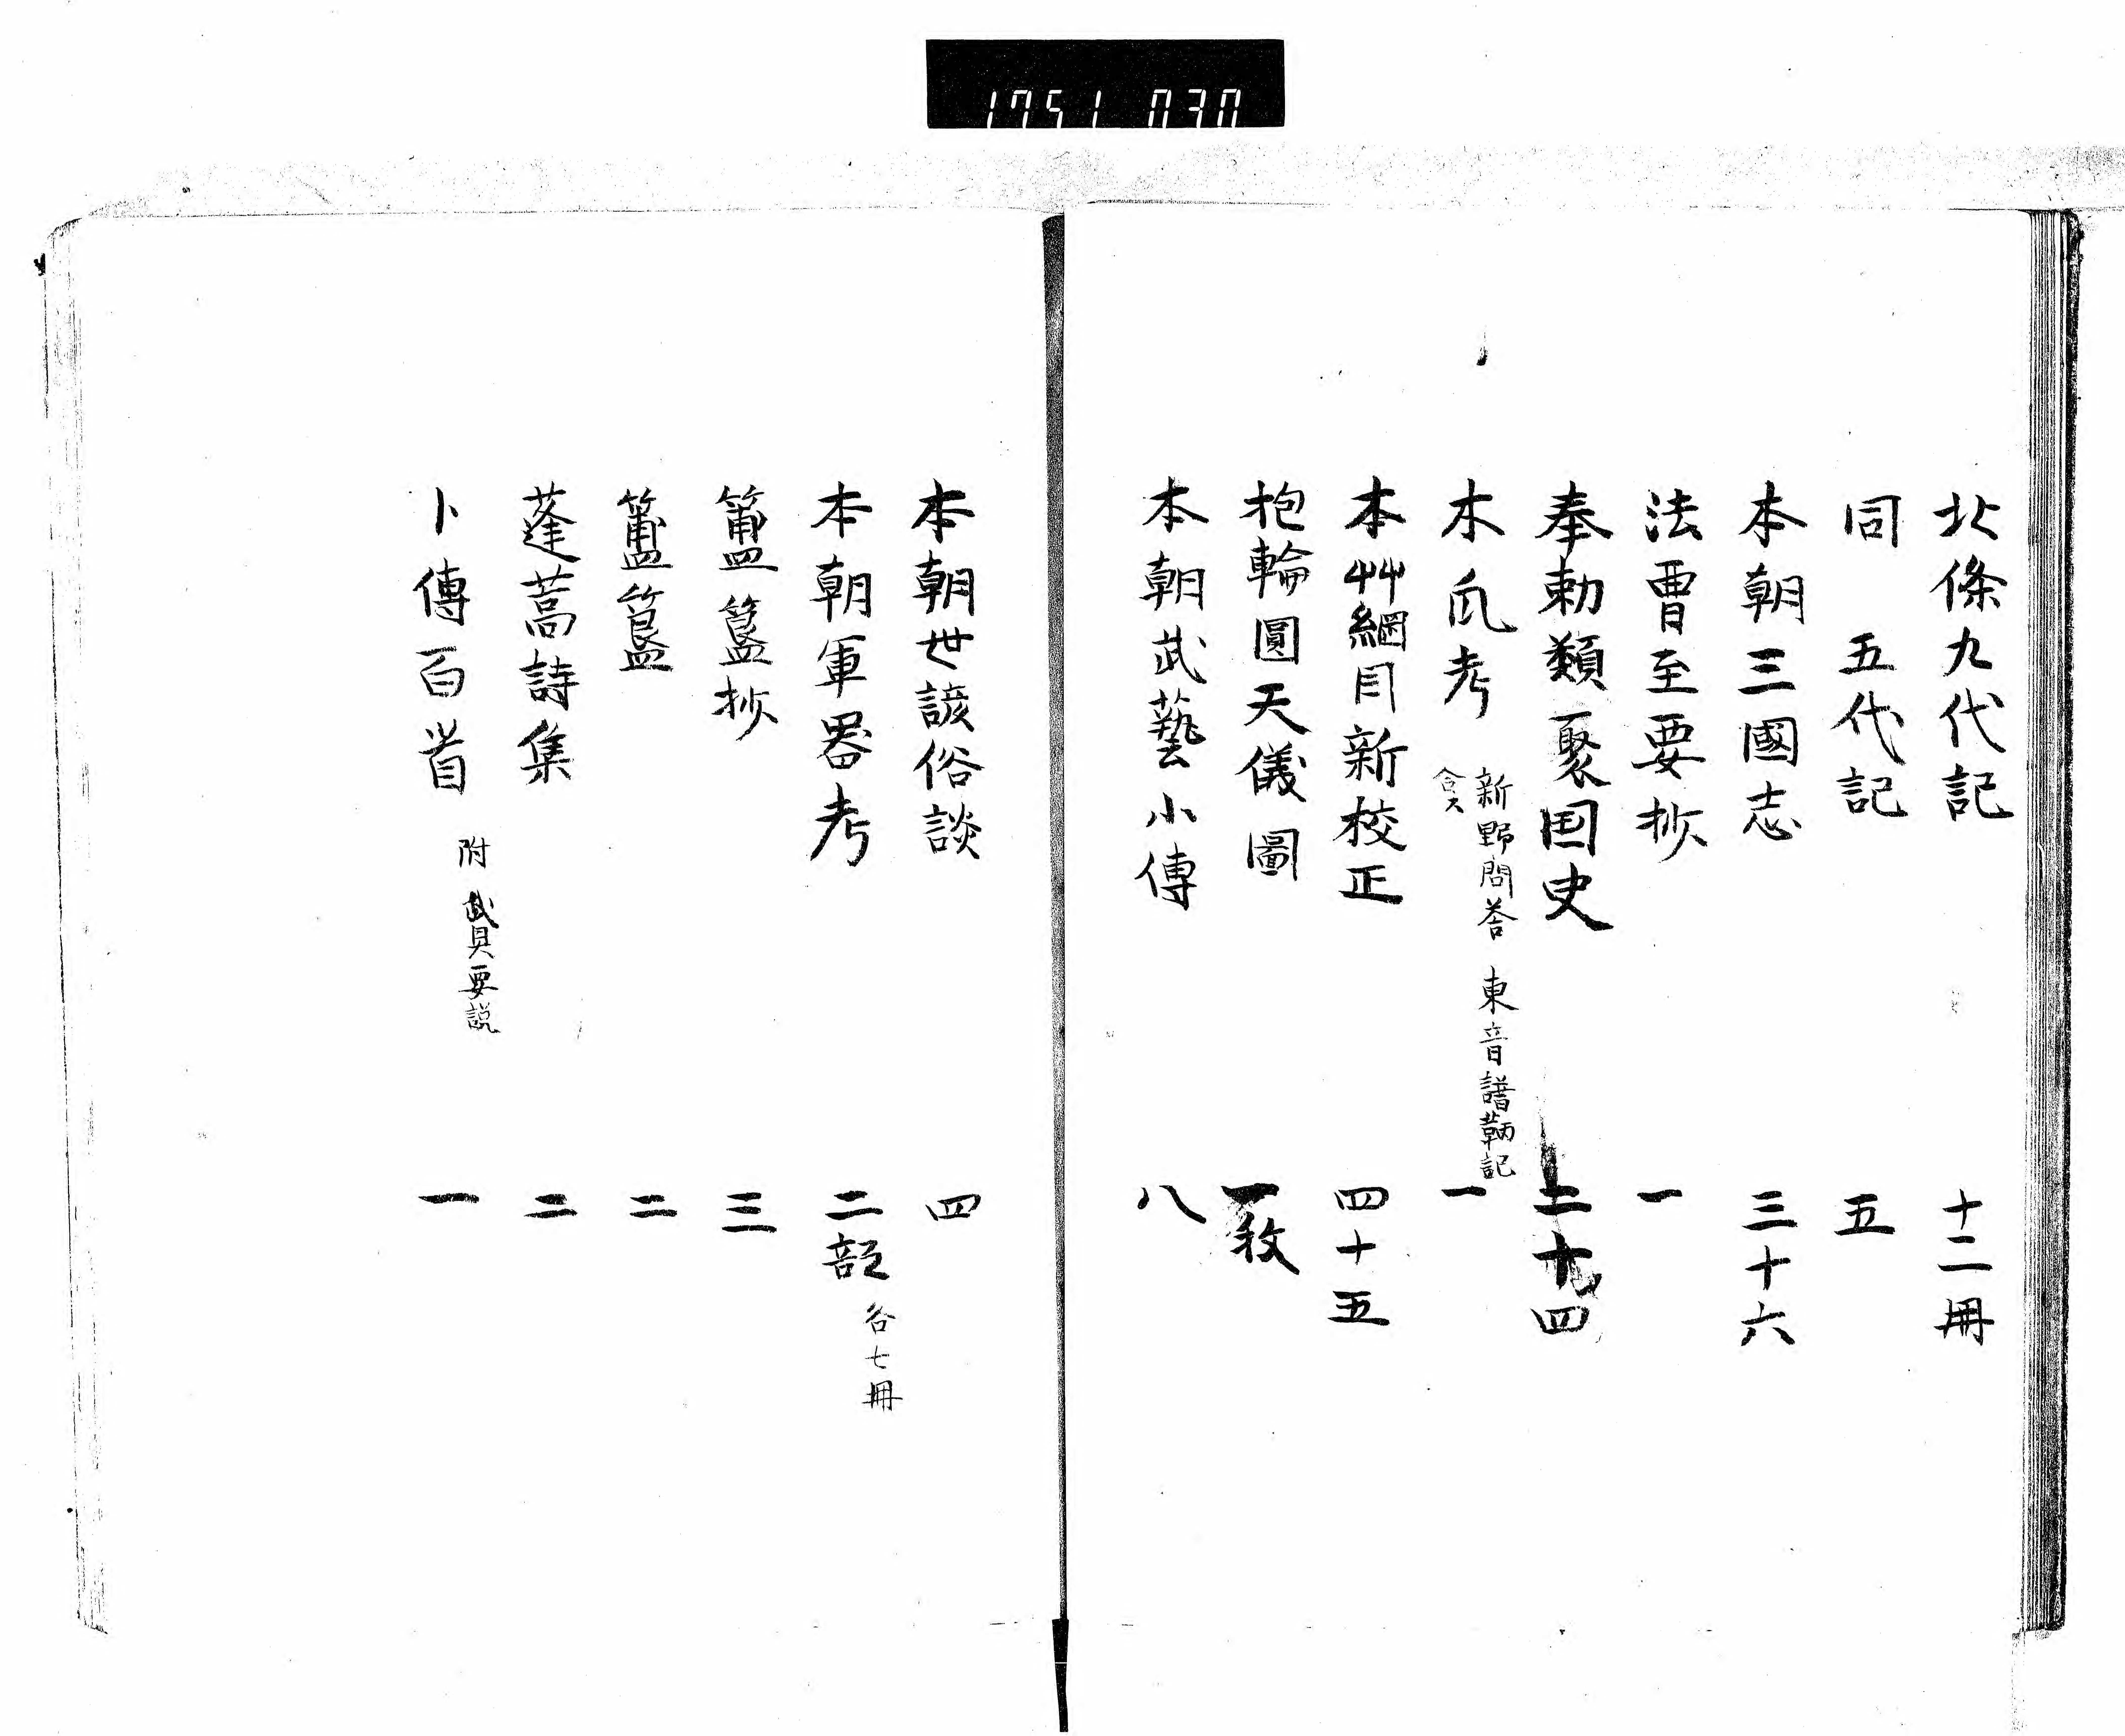 1751 030
北條九代記 十二冊
同 五代記 五
本朝三國志 三十六
法曹至要抄 一
奉勅類聚国史 二十四
木瓜考 新野問荅 東音譜鞆記 一
合ス
本艸綱目新校正 四十五
抱輪圓天儀圖 一枚
本朝武藝小傳 八
本朝世諺俗談 四
本朝軍器考 二部 各七冊
簠簋抄 三
簠簋 二
蓬蒿詩集 二
卜傳百首 附 武具要説 一